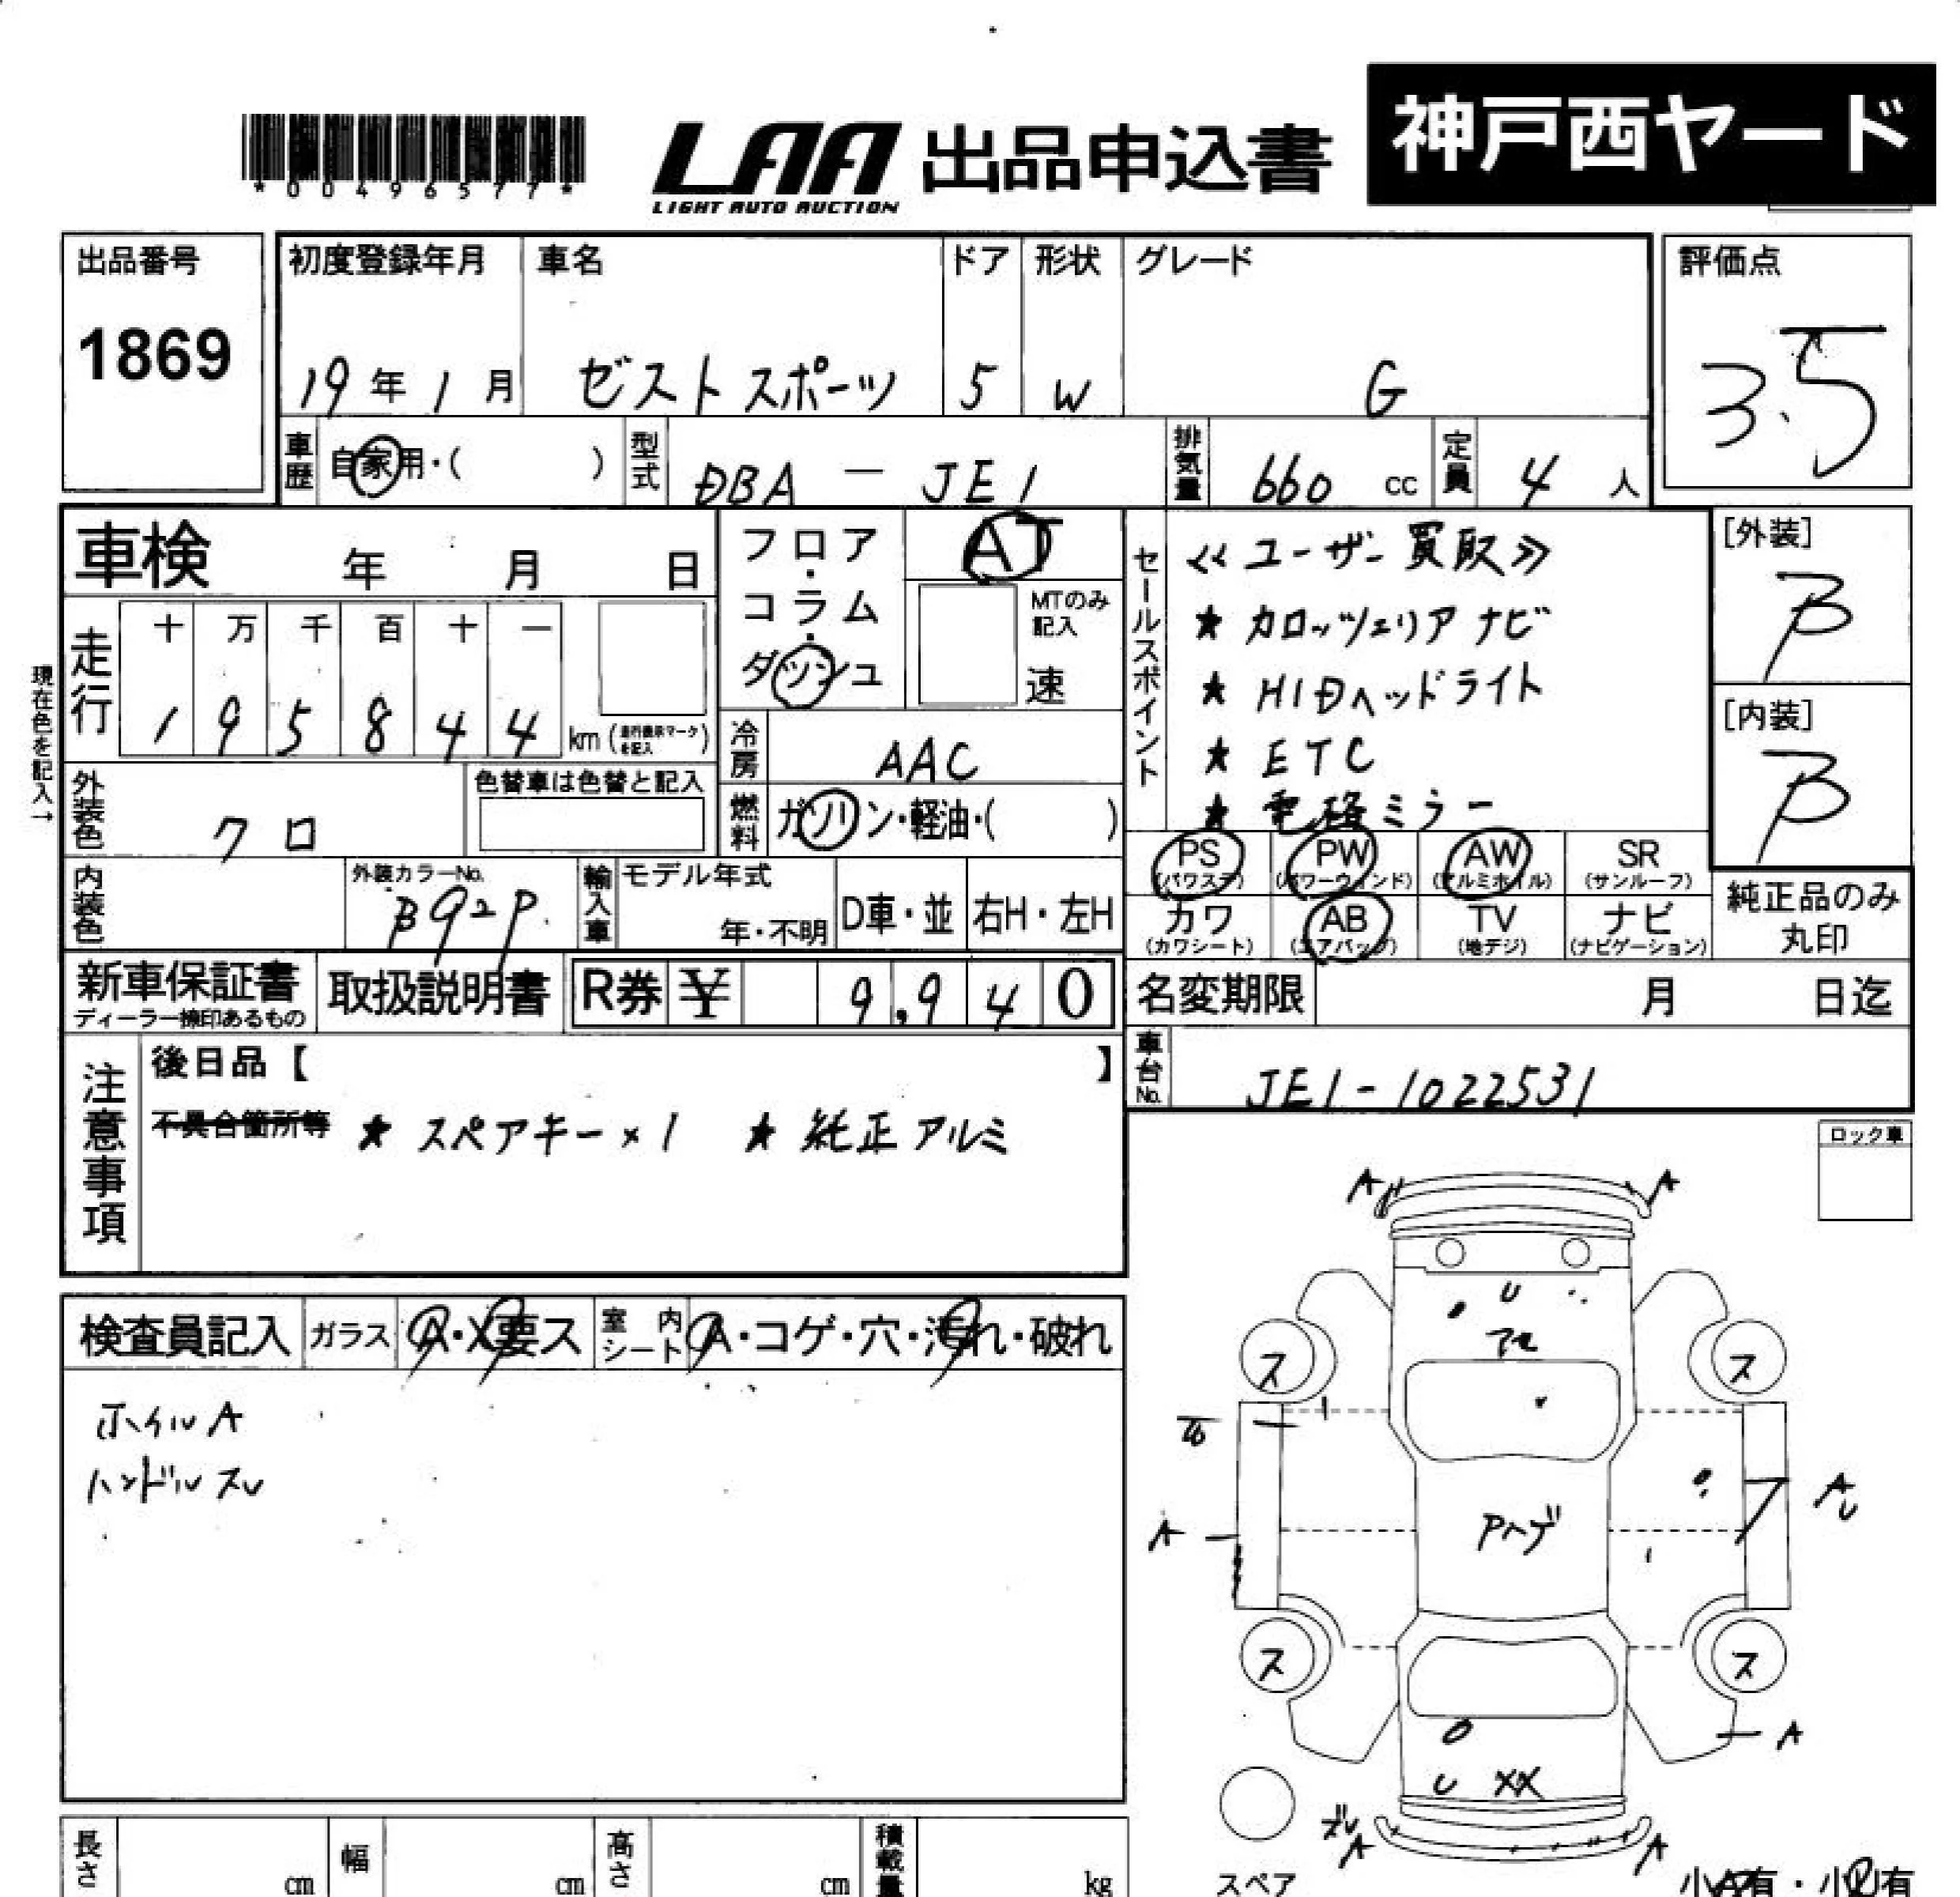 神戸西ヤード
*00496577*
LAA 出品申込書
LIGHT AUTO AUCTION
出品番号
1869
初度登録年月 車名 ドア 形状 グレード
19年1月 ゼストスポーツ 5 W G
評価点
3.5
車歴 自家用・( ) 型式 DBA - JE1 排気量 660 cc 定員 4 人
車検 年 月 日
フロア・コラム・ダッシュ
AT
MTのみ記入
速
現在色を記入→
走行
十 万 千 百 十 一
1 9 5 8 4 4 km (走行表示マークを記入)
冷房 AAC
外装色 クロ
色替車は色替と記入
燃料 ガソリン・軽油・( )
内装色
外装カラーNo.
B92P
輸入車 モデル年式
年・不明 D車・並 右H・左H
セールスポイント
≪ユーザー買取≫
★ カロッツェリア ナビ
★ HIDヘッドライト
★ ETC
★ 電格ミラー
[外装]
B
[内装]
B
PS (パワステ) PW (パワーウィンド) AW (アルミホイル) SR (サンルーフ)
カワ (カワシート) AB (エアバッグ) TV (地デジ) ナビ (ナビゲーション)
純正品のみ丸印
新車保証書
ディーラー捺印あるもの
取扱説明書
R券 ¥ 9,940
名変期限 月 日迄
車台No. JE1-1022531
注意事項
後日品【 】
不具合箇所等 ★ スペアキー×1 ★ 純正アルミ
ロック車
検査員記入 ガラス A・X要ス 室内シート A・コゲ・穴・汚れ・破れ
ホイルA
ハンドルスレ
A A
U
アセ
ス ス
A U
A
Pハゲ
ス ス
A
U XX
A A
スペア
小A有・小U有
長さ cm 幅 cm 高さ cm 積載量 kg